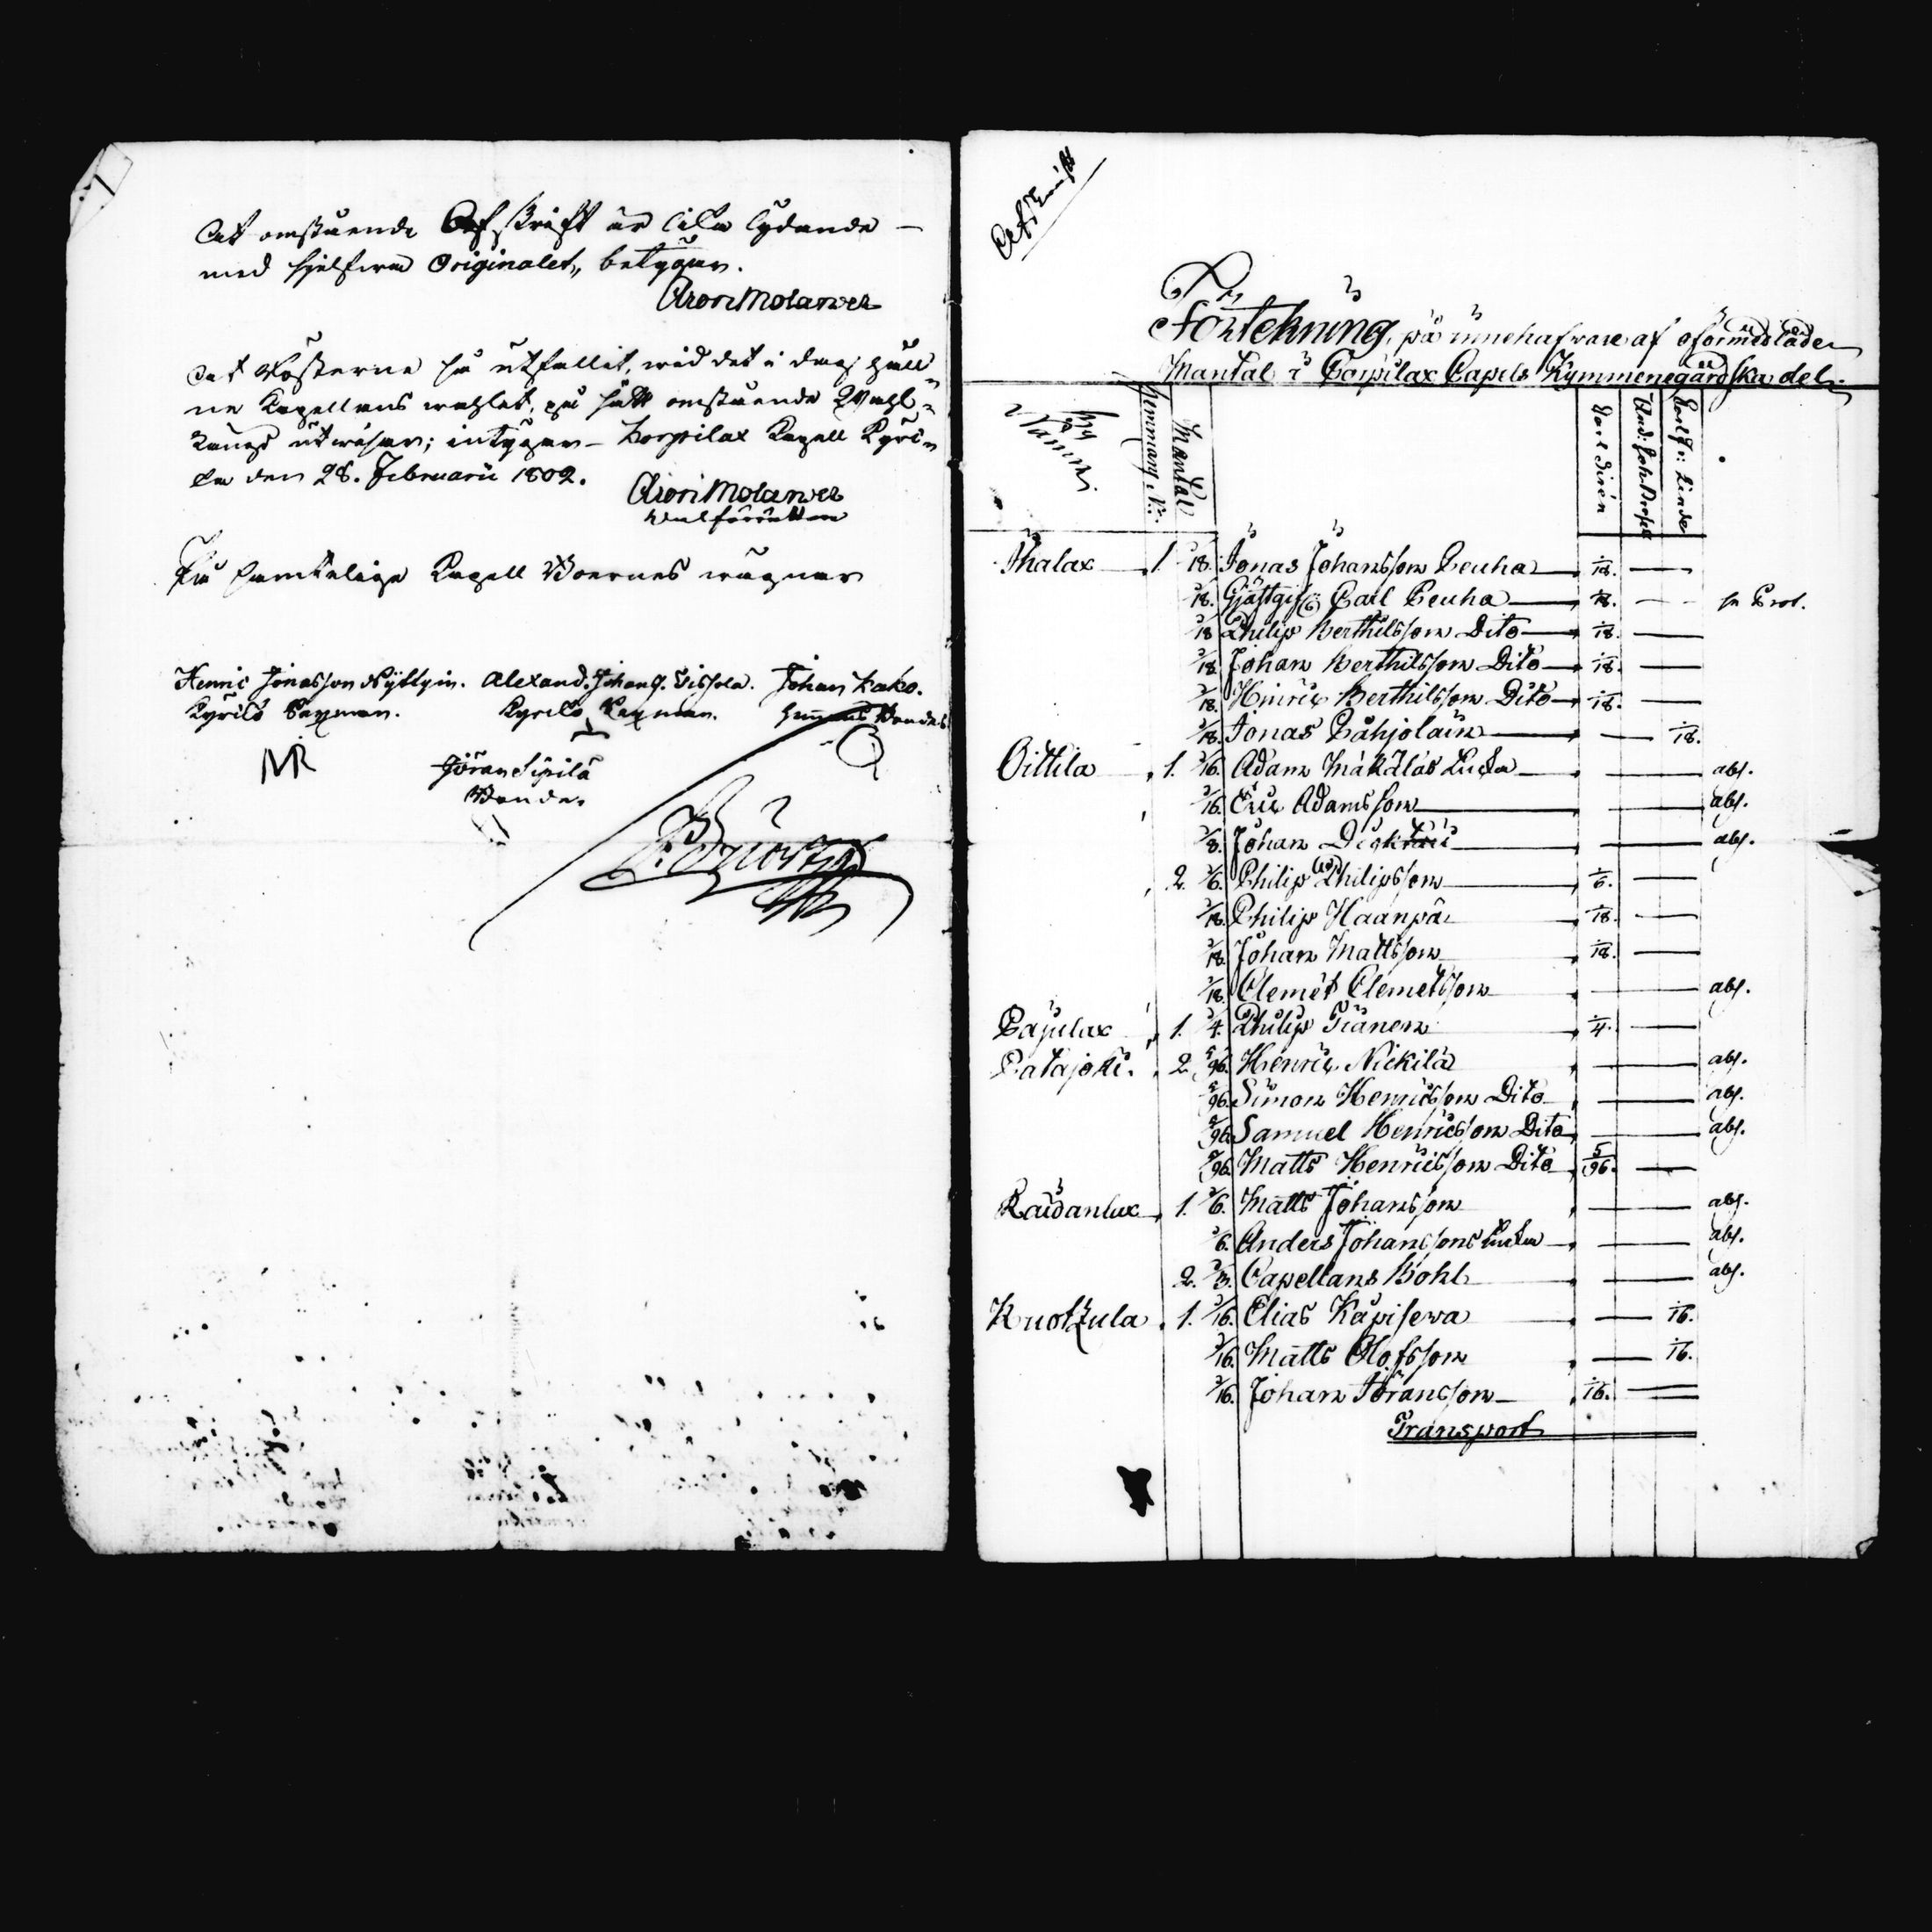 At omstående Afskrift är lika lydande
med sjelfwa Originalet, betygar.
Aron Molander
At Rösterne så utfallit, wid det i dag håll-
ne Capellans wahlet, på sätt omstående Wahl-
Längd utwisar; intygar Korpilax Kapell Kyrc-
ka den 28. Februarii 1802.
Aron Molander
Walförrättare
På samtelige Kapell Boernes wägnar
Henric Jonasson Nyttyin. Alexand. Johan Johan Kako.
Kyrko Kyrko
Jöran Sipilä
Bonde.
Afskrift
Förtekning, på innehafware af oförmedlade
Mantal i Corpilax Capels Kymmenegårdska del.
By Namn. Hemmans No. Mantal Carl Linde
Thalax 1. 1/18. Jonas Johansson Peuha 1/18.
1/18. Gjästgif: Carl Peuha 1/18. se Prot.
1/18 Philip Berthilsson Dito 1/18.
1/18 Johan Berthilsson Dito 1/18.
1/18. Hinric Berthilsson Dito 1/18.
1/18. Jonas Påhjolain 1/18.
Oittila 1. 1/16. Adam Mäkäläs Enka abs.
1/16. Eric Adamsson abs.
1/8. Johan abs.
2. 1/6. Philip Philipsson 1/6.
1/18. Philip Haanpä 1/18.
1/18. Johan Mattsson 1/18.
1/18. Clemet Clemetsson abs.
Pajulax 1. 1/4. Philip Tiänen 1/4.
Patajoki. 2. 5/96. Henric Nickilä abs.
5/96. Simon Henricsson Dito abs.
5/96. Samuel Henricsson Dito abs.
5/96. Matts Henricsson Dito 5/96.
Raidanlax 1. 1/6. Matts Johansson abs.
1/6. Anders Johanssons Enka abs.
2. 1/3. Capellans Bohl abs.
Kuotzula 1. 1/16. Elias Kapisewa 1/16.
1/16. Matts Olofsson 1/16.
1/16. Johan Jöransson 1/16.
Transport